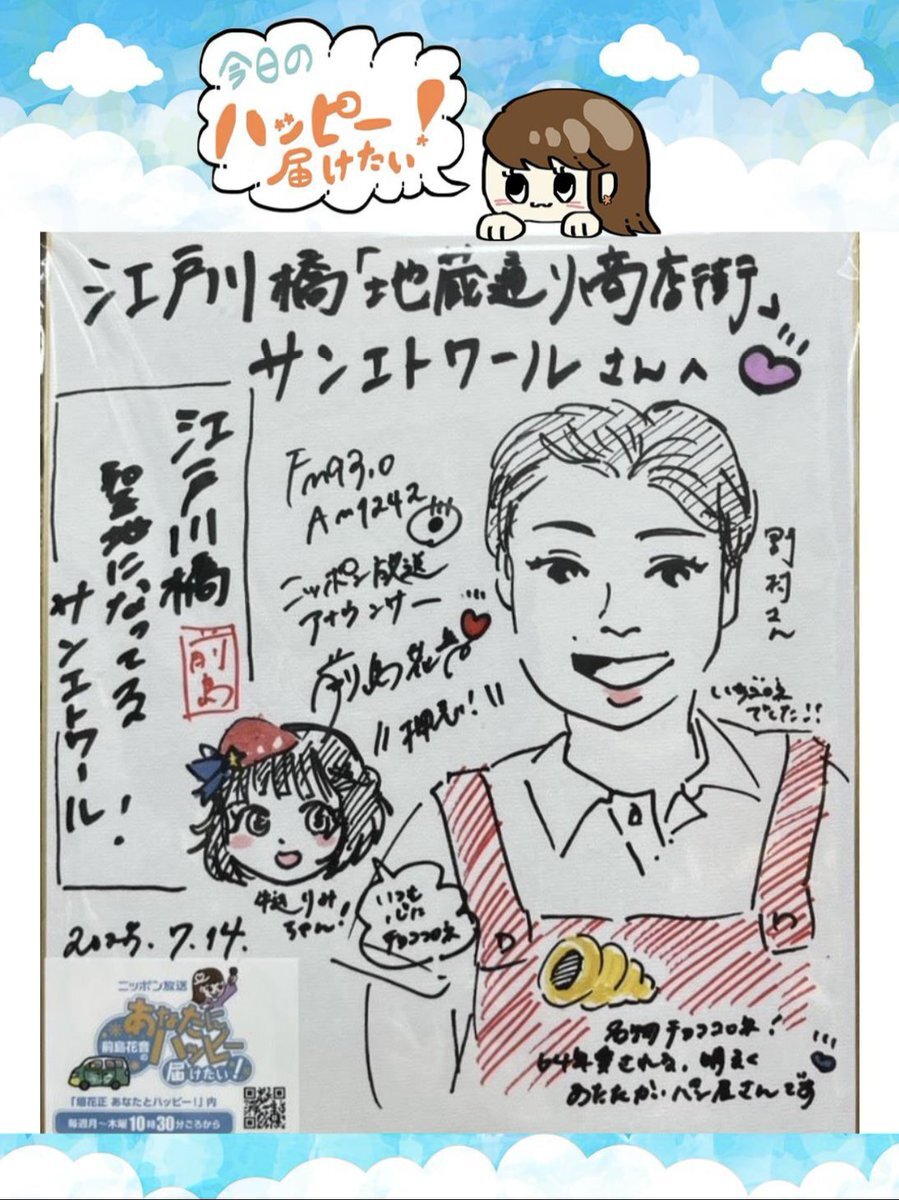 今日の
ハッピー!
届けたい
江戸川橋「地蔵通り商店街」
サンエトワールさんへ
江戸川橋
聖地になってる!
サンエトワール
前島
Fm93.0
Am1242
ニッポン放送
アナウンサー
前島花音
野村さん
いちごコロネ
でした!!
牛込りみ
ちゃん!
いつも
心に
チョココロネ
2025.7.14.
名物チョココロネ!
64年愛される、明るく
あたたかいパン屋さんです
ニッポン放送
前島花音の
あなたに
ハッピー
届けたい!
「垣花正 あなたとハッピー!」内
毎週月〜木曜10時30分ごろから